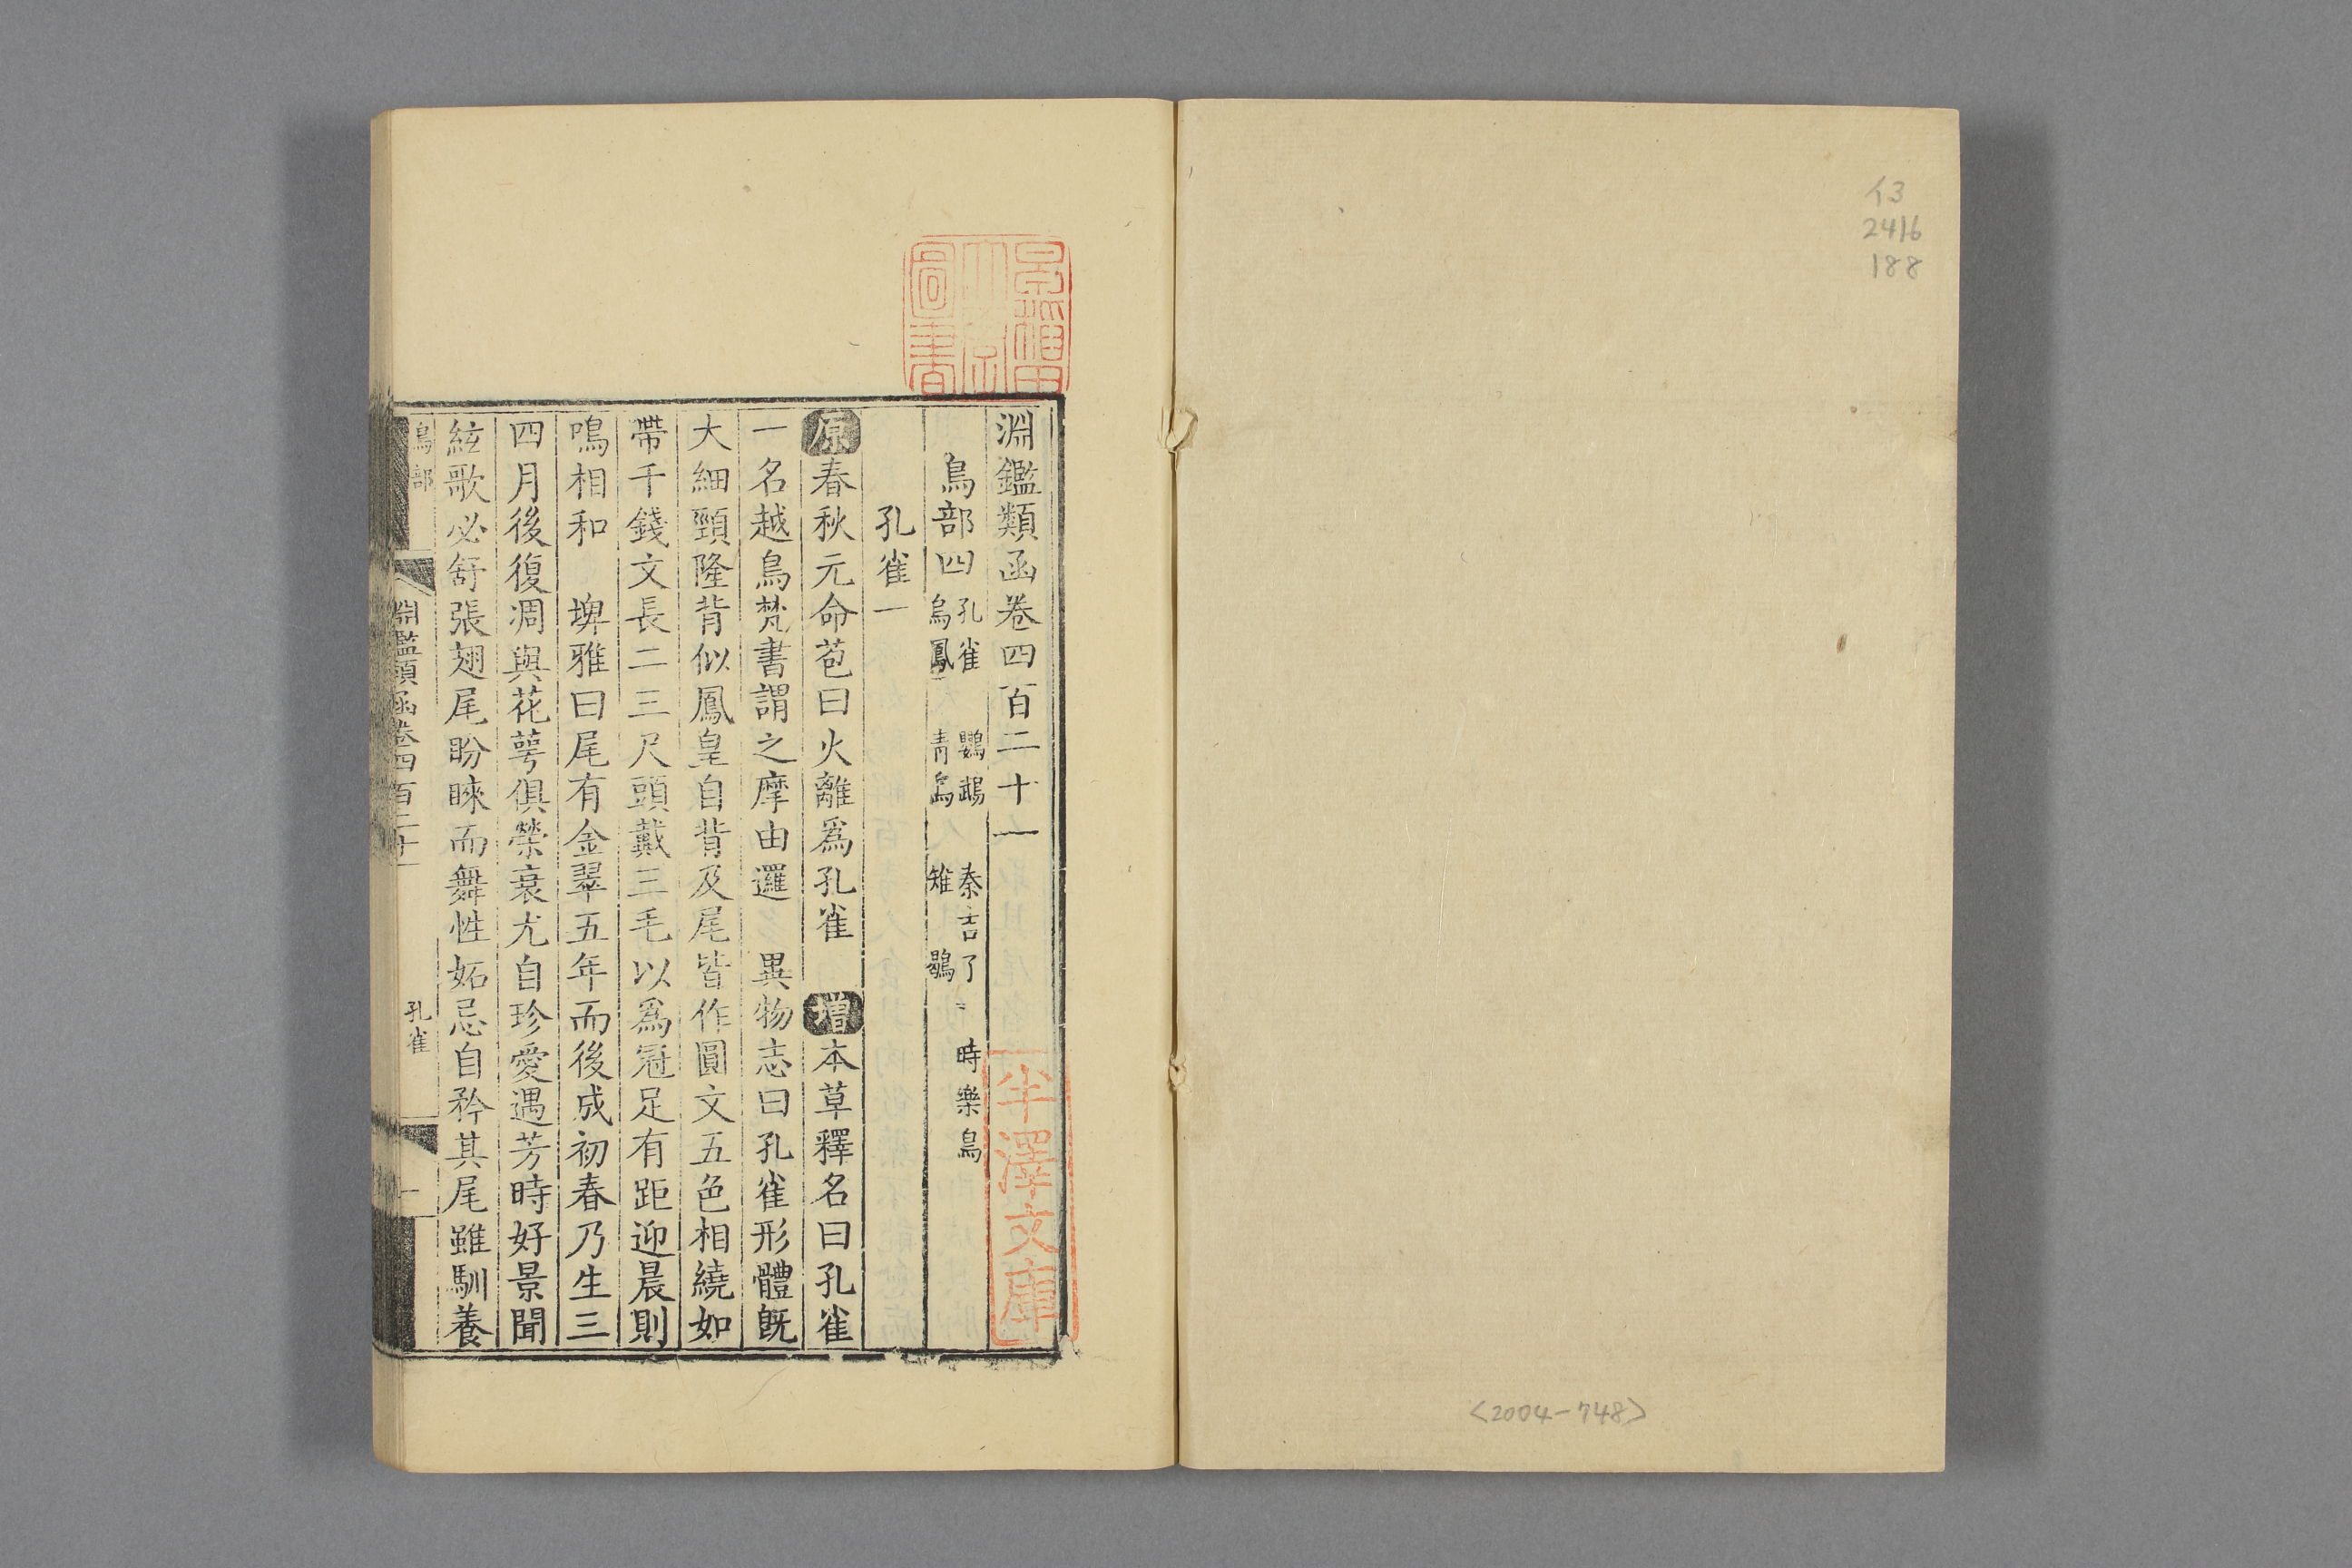 イ3
2416
188
<2004-748>
早稲田大学圖書
半澤文庫
淵鑑類函卷四百二十一
鳥部四 孔雀 鸚鵡 秦吉了 時樂鳥
烏鳳 青鳥 雉 鶡
孔雀一
原春秋元命苞曰火離爲孔雀 增本草釋名曰孔雀
一名越鳥梵書謂之摩由邏 異物志曰孔雀形體旣
大細頸隆背似鳳皇自背及尾皆作圓文五色相繞如
帶千錢文長二三尺頭戴三毛以爲冠足有距迎晨則
鳴相和 埤雅曰尾有金翠五年而後成初春乃生三
四月後復凋與花萼俱榮衰尤自珍愛遇芳時好景聞
絃歌必舒張翅尾盼睞而舞性妬忌自矜其尾雖馴養
鳥部
淵鑑類函卷四百二十一
孔雀
一